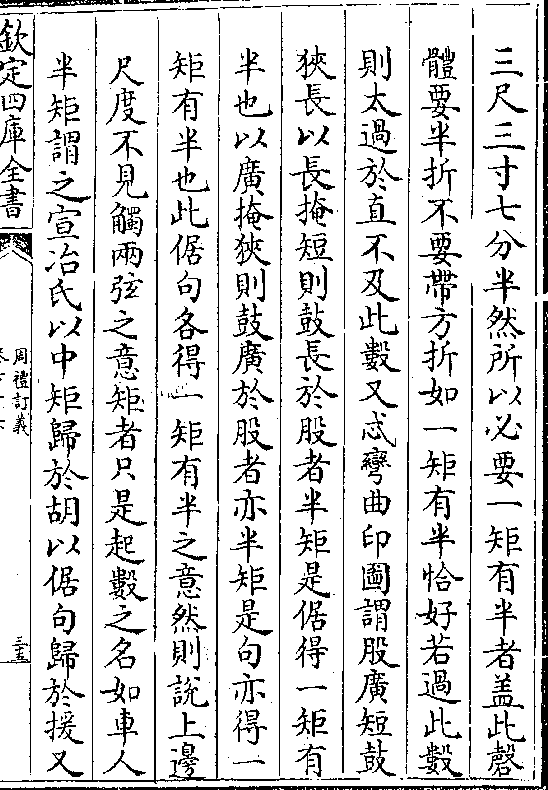 三尺三寸七分半然所以必要一矩有半者盖此磬
體要半折不要帶方折如一矩有半恰好若過此數
則太過於直不及此數又忒彎曲印圖謂股廣短鼓
狹長以長掩短則鼓長於股者半矩是倨得一矩有
半也以廣掩狹則鼓廣於股者亦半矩是句亦得一
矩有半也此倨句各得一矩有半之意然則說上邊
尺度不見觸兩弦之意矩者只是起數之名如車人
半矩謂之宣冶氏以中矩歸於胡以倨句歸於援又
欽定四庫全書
周禮訂義
三十五